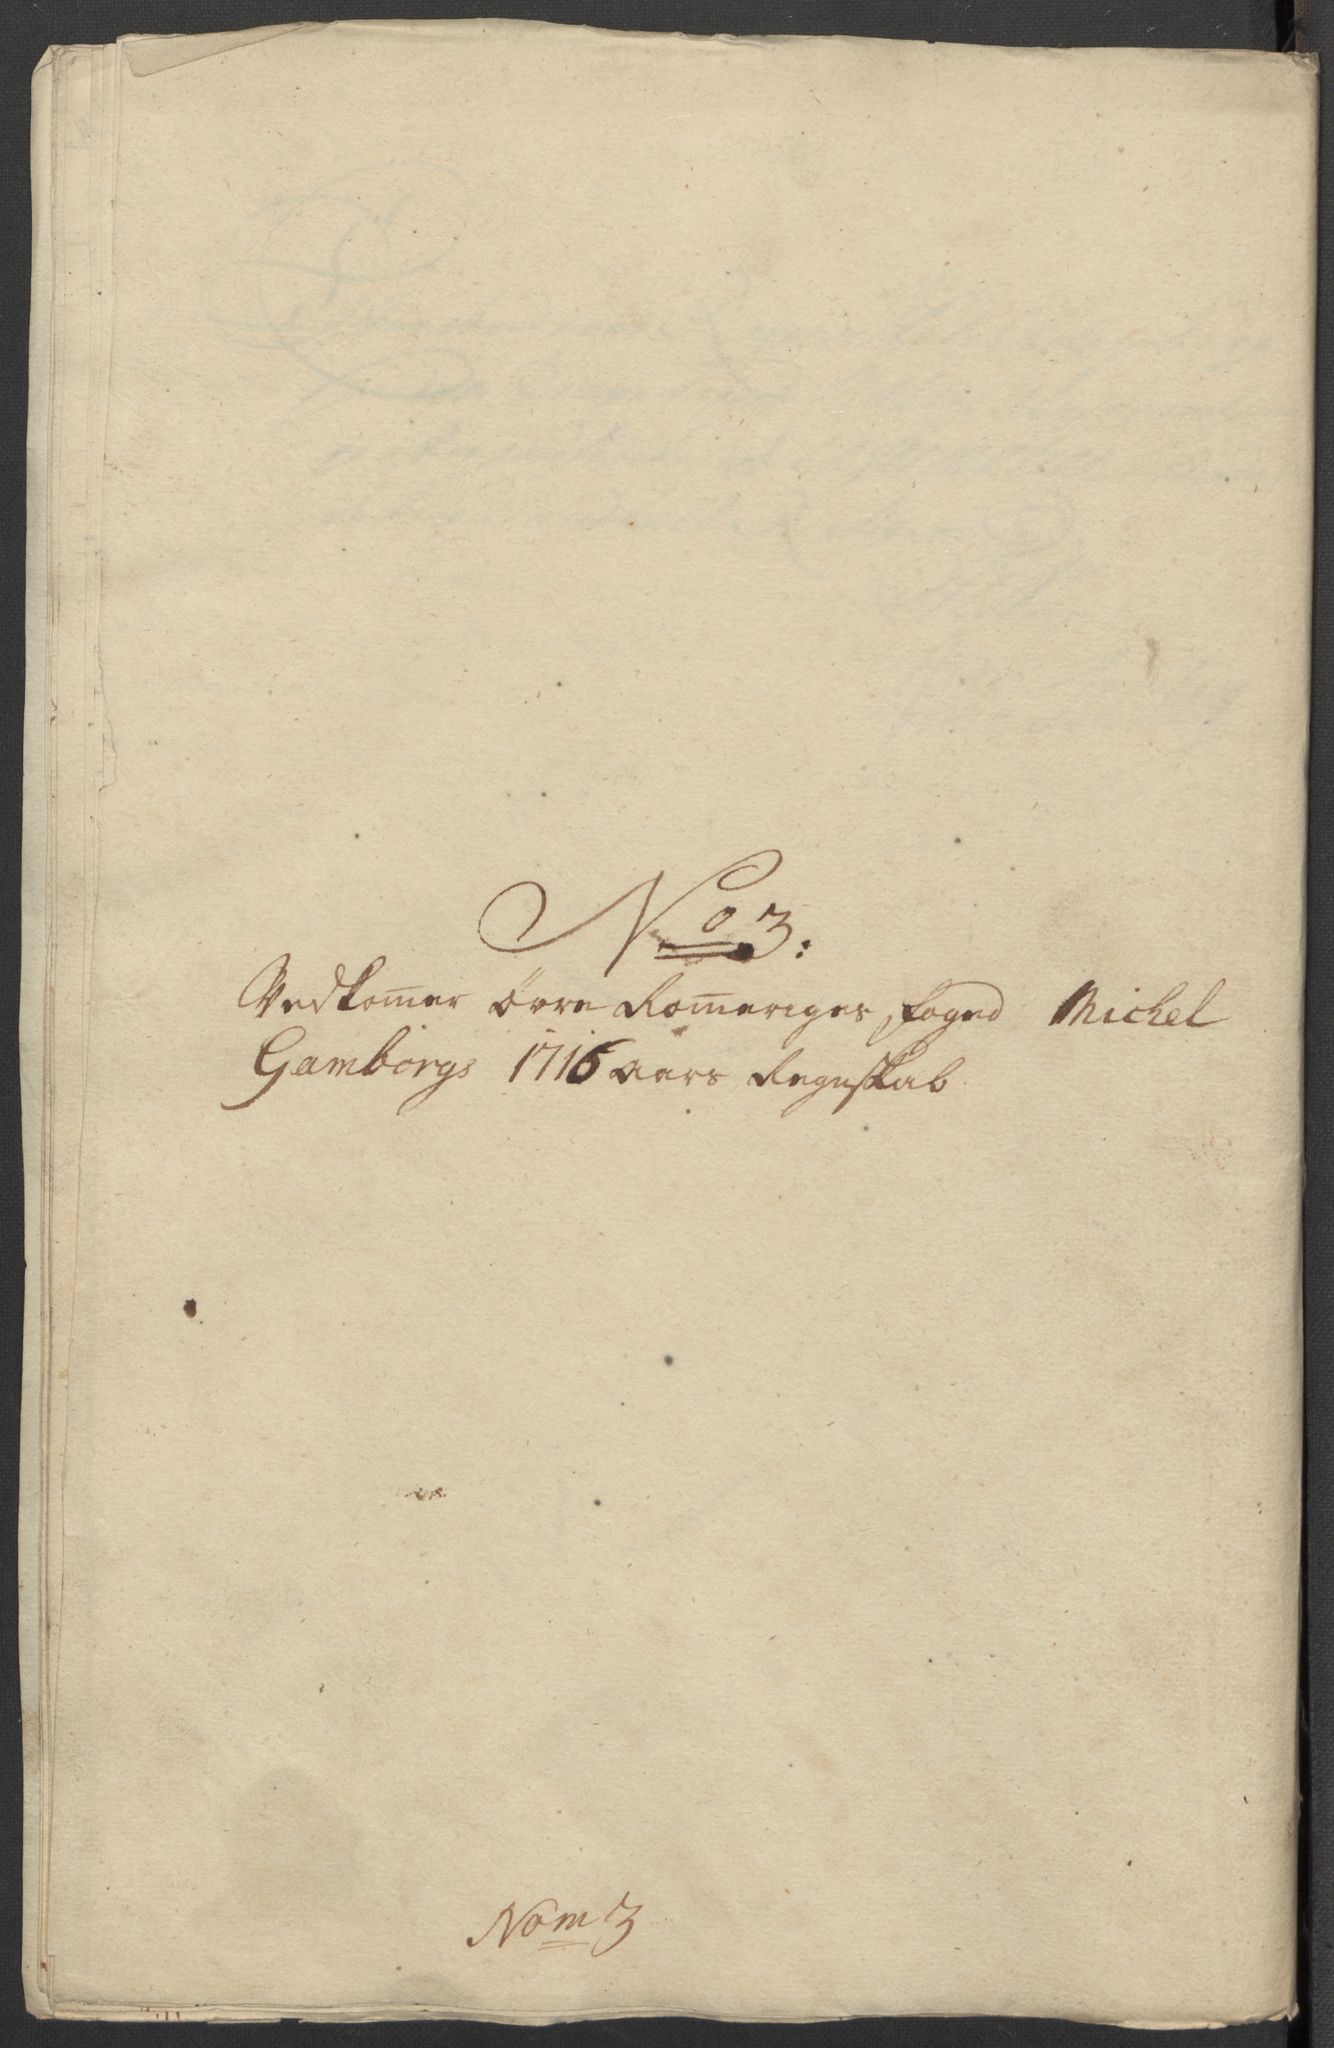 No 3:
Vedkom̅er övre Rom̅eriges foged Michel
Gamborgs 1716 aars Regnskab
Nom 3